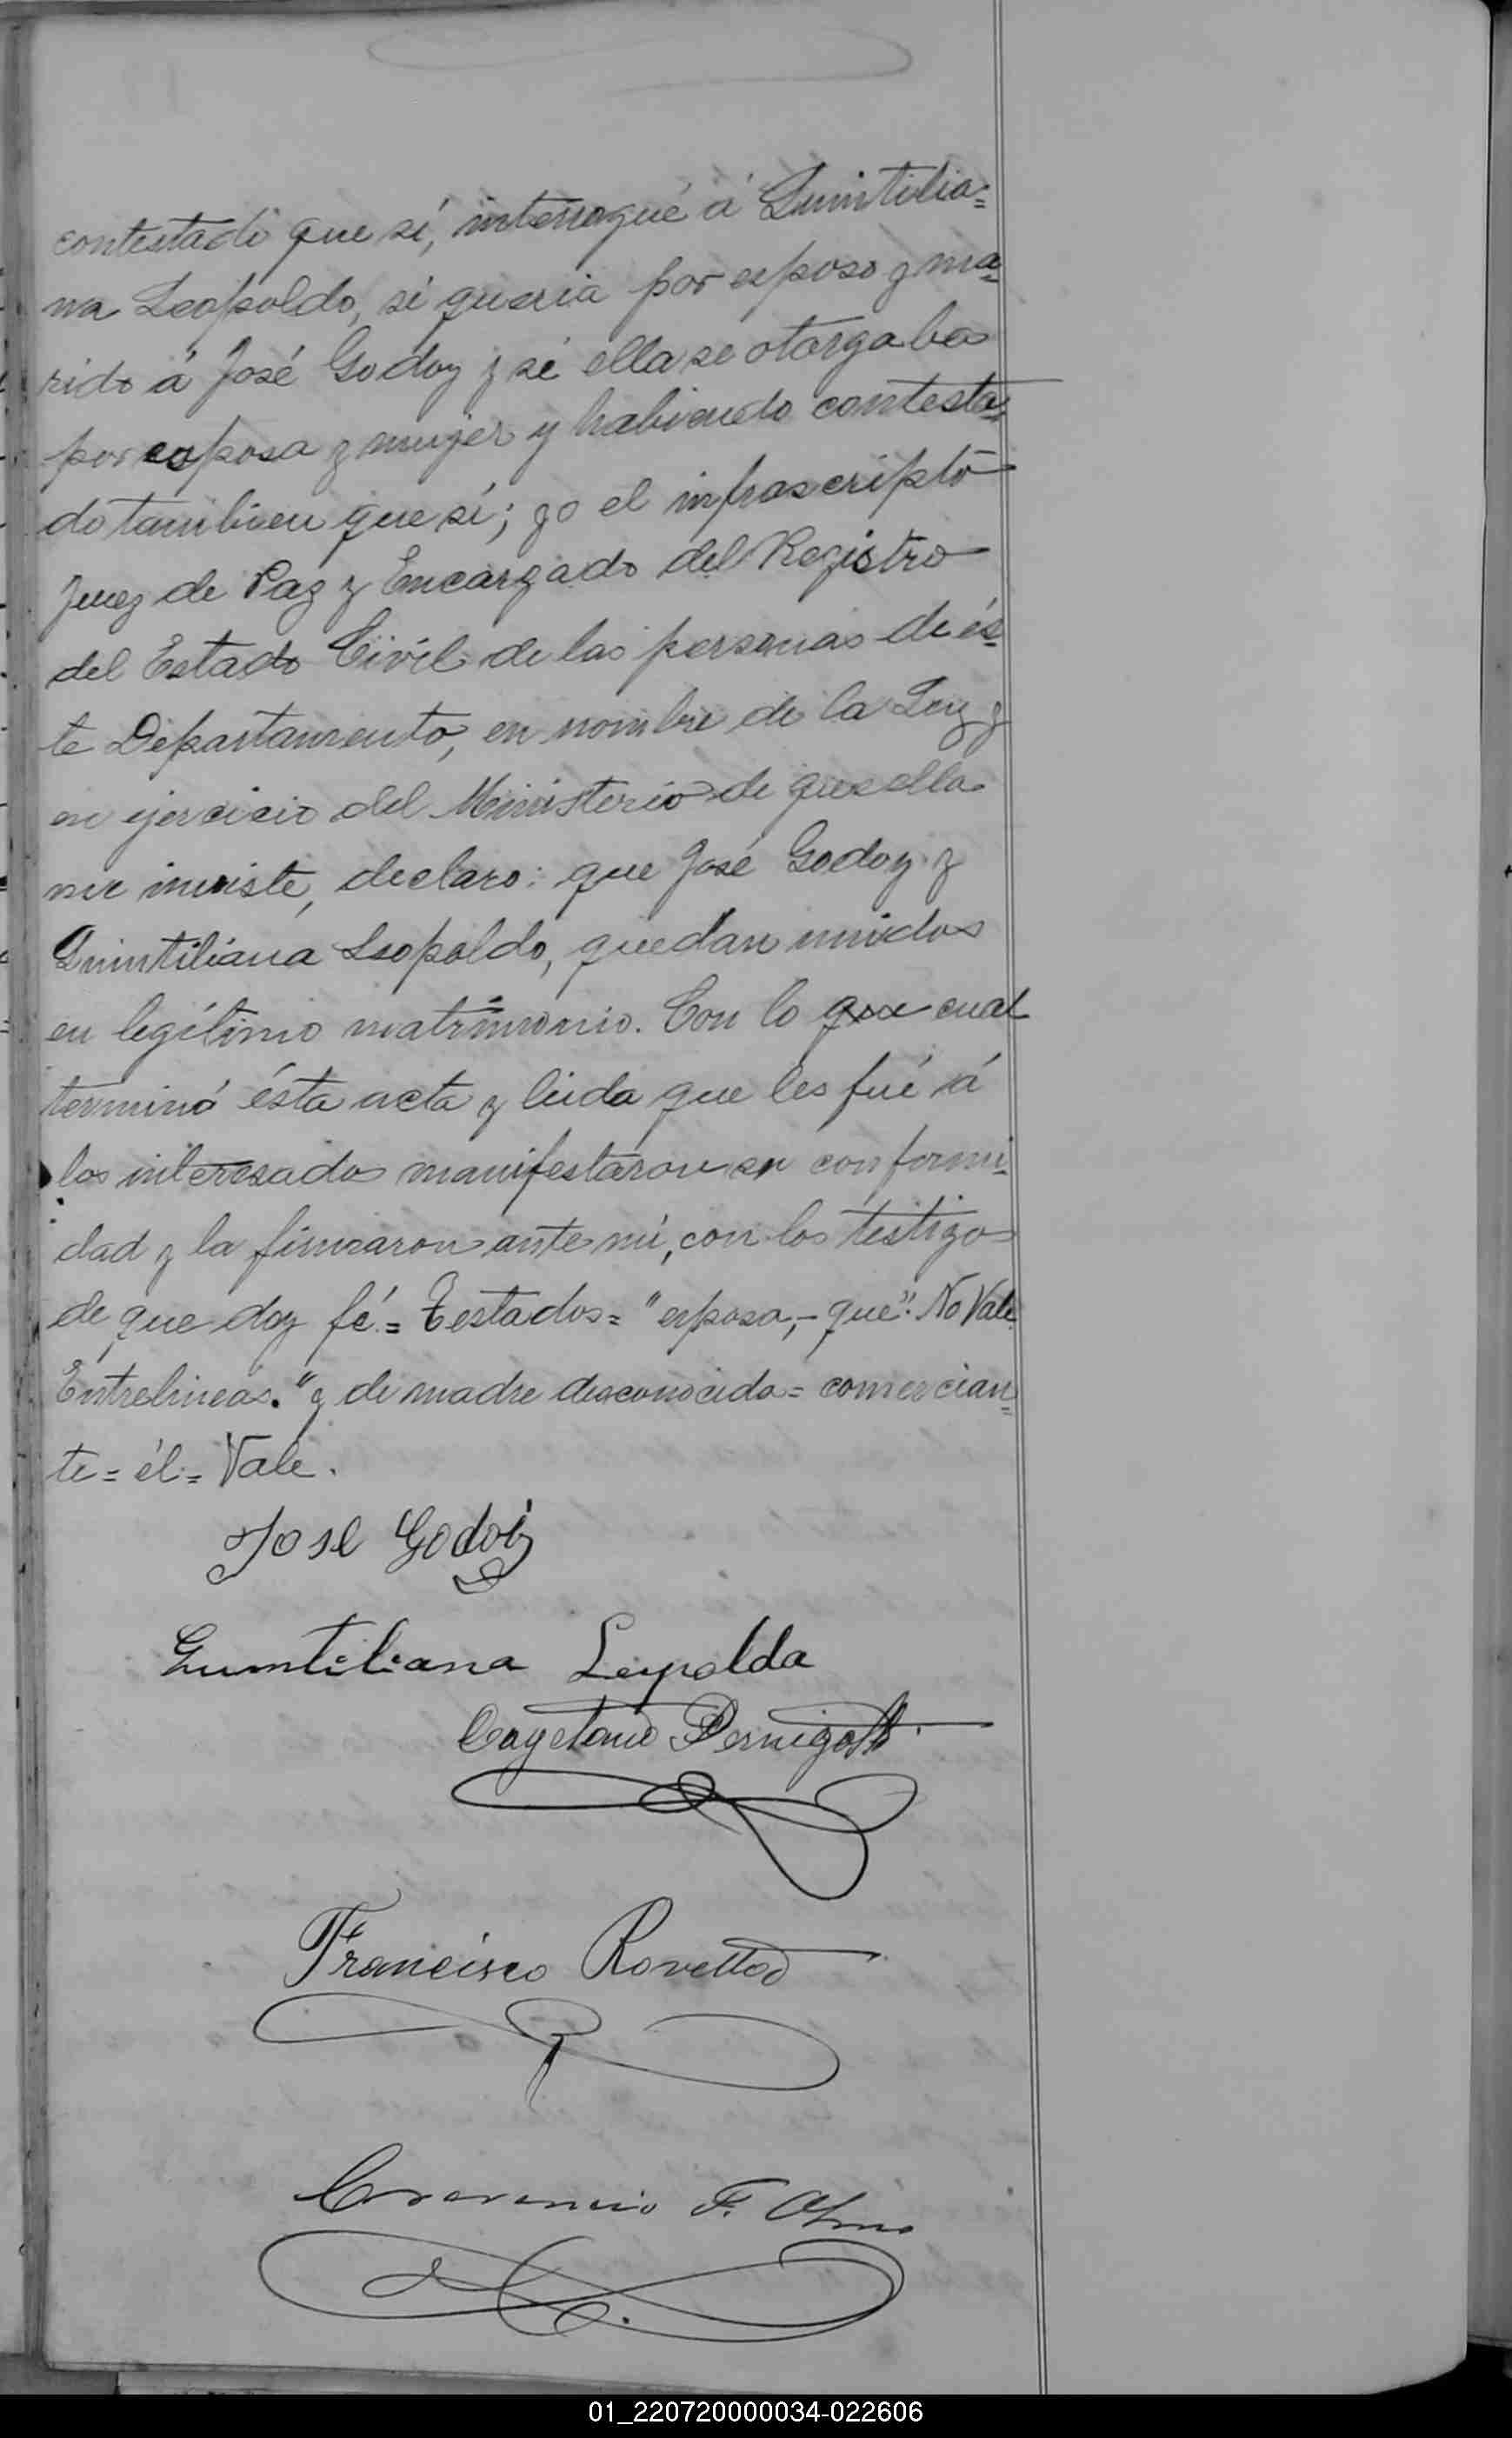 contestado que sí, interrogué á Quintilia=
na Leopoldo, si queria por esposo y ma=
rido á José Godoy y si ella se otorgaba
por esposa y mujer y habiendo contesta=
do tambien que sí; yo el infrascripto
Juez de Paz y Encargado del Registro
del Estado Civíl de las personas de és=
te Departamento, en nombre de la Ley y
en ejercicio del Ministerio de que ella
me inviste, declaro: que José Godoy y
Quintiliana Leopoldo, quedan unidos
en legítimo matrimonio. Con lo que cual
terminó ésta acta y leida que les fué á
los interesados manifestaron su conformi=
dad y la firmaron ante mí, con los testigos
de que doy fé.= Testados= "esposa,- que". No Vale
Entrelineas. "y de madre desconocida= comercian=
te= él= Vale.
Jose Godoiz
Quintiliana Leopolda
Cayetano Pernigotti
Francisco Rovetto
F.
01_220720000034-022606